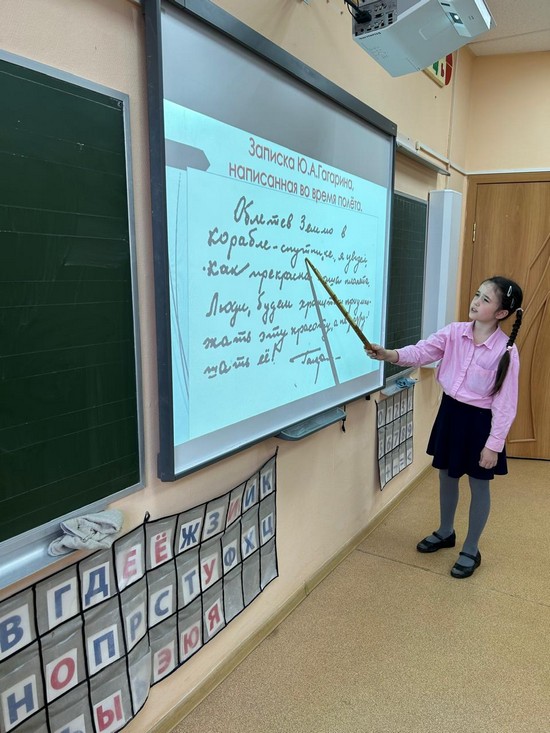 Записка Ю.А.Гагарина,
написанная во время полёта.
Облетев Землю в
корабле-спутнике, я увидел
как прекрасна наша планета.
Люди, будем хранить и приумно-
жать эту красоту, а не разру-
шать её!
В Г Д Е Ё Ж З И Й К
Н О П Р С Т У Ф Х Ц
Ы Э Ю Я